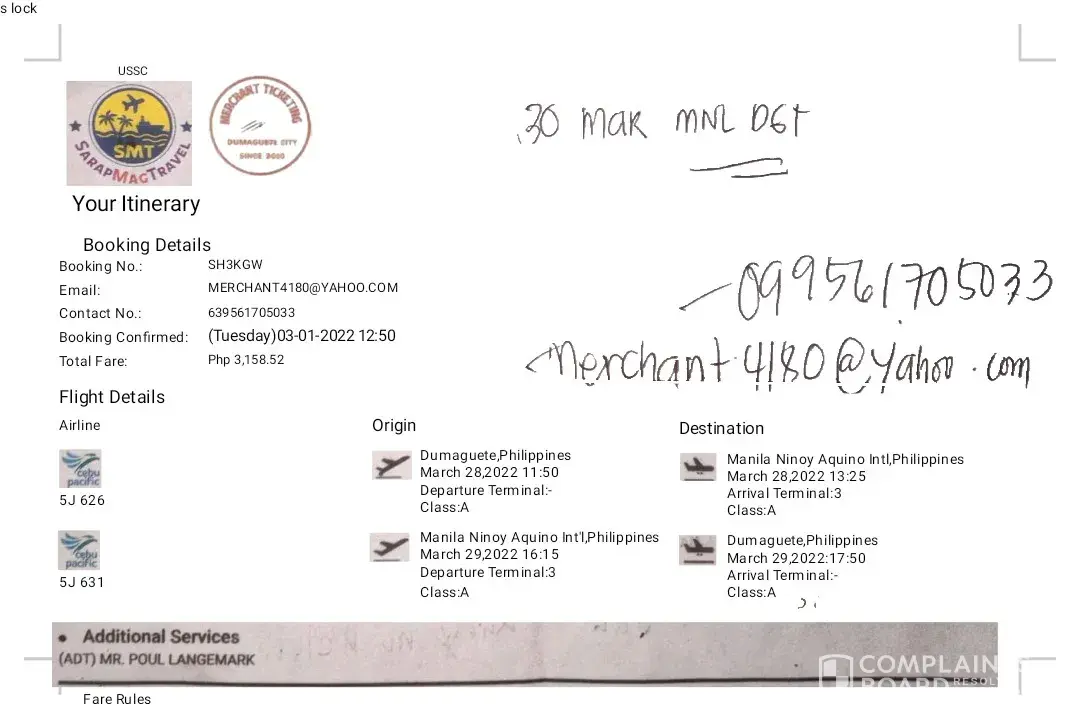 s lock
USSC
SMT
SARAPMAGTRAVEL
MERCHANT TICKETING
DUMAGUETE CITY
SINCE 2010
30 MAR MNL DGT
Your Itinerary
Booking Details
Booking No.: SH3KGW
Email: MERCHANT4180@YAHOO.COM
Contact No.: 639561705033
Booking Confirmed: (Tuesday)03-01-2022 12:50
Total Fare: Php 3,158.52
099561705033
Merchant4180@yahoo.com
Flight Details
Airline Origin Destination
cebu pacific
5J 626
Dumaguete,Philippines
March 28,2022 11:50
Departure Terminal:-
Class:A
Manila Ninoy Aquino Intl,Philippines
March 28,2022 13:25
Arrival Terminal:3
Class:A
cebu pacific
5J 631
Manila Ninoy Aquino Int'l,Philippines
March 29,2022 16:15
Departure Terminal:3
Class:A
Dumaguete,Philippines
March 29,2022:17:50
Arrival Terminal:-
Class:A
• Additional Services
(ADT) MR. POUL LANGEMARK
COMPLAIN
BOARD RESOL
Fare Rules